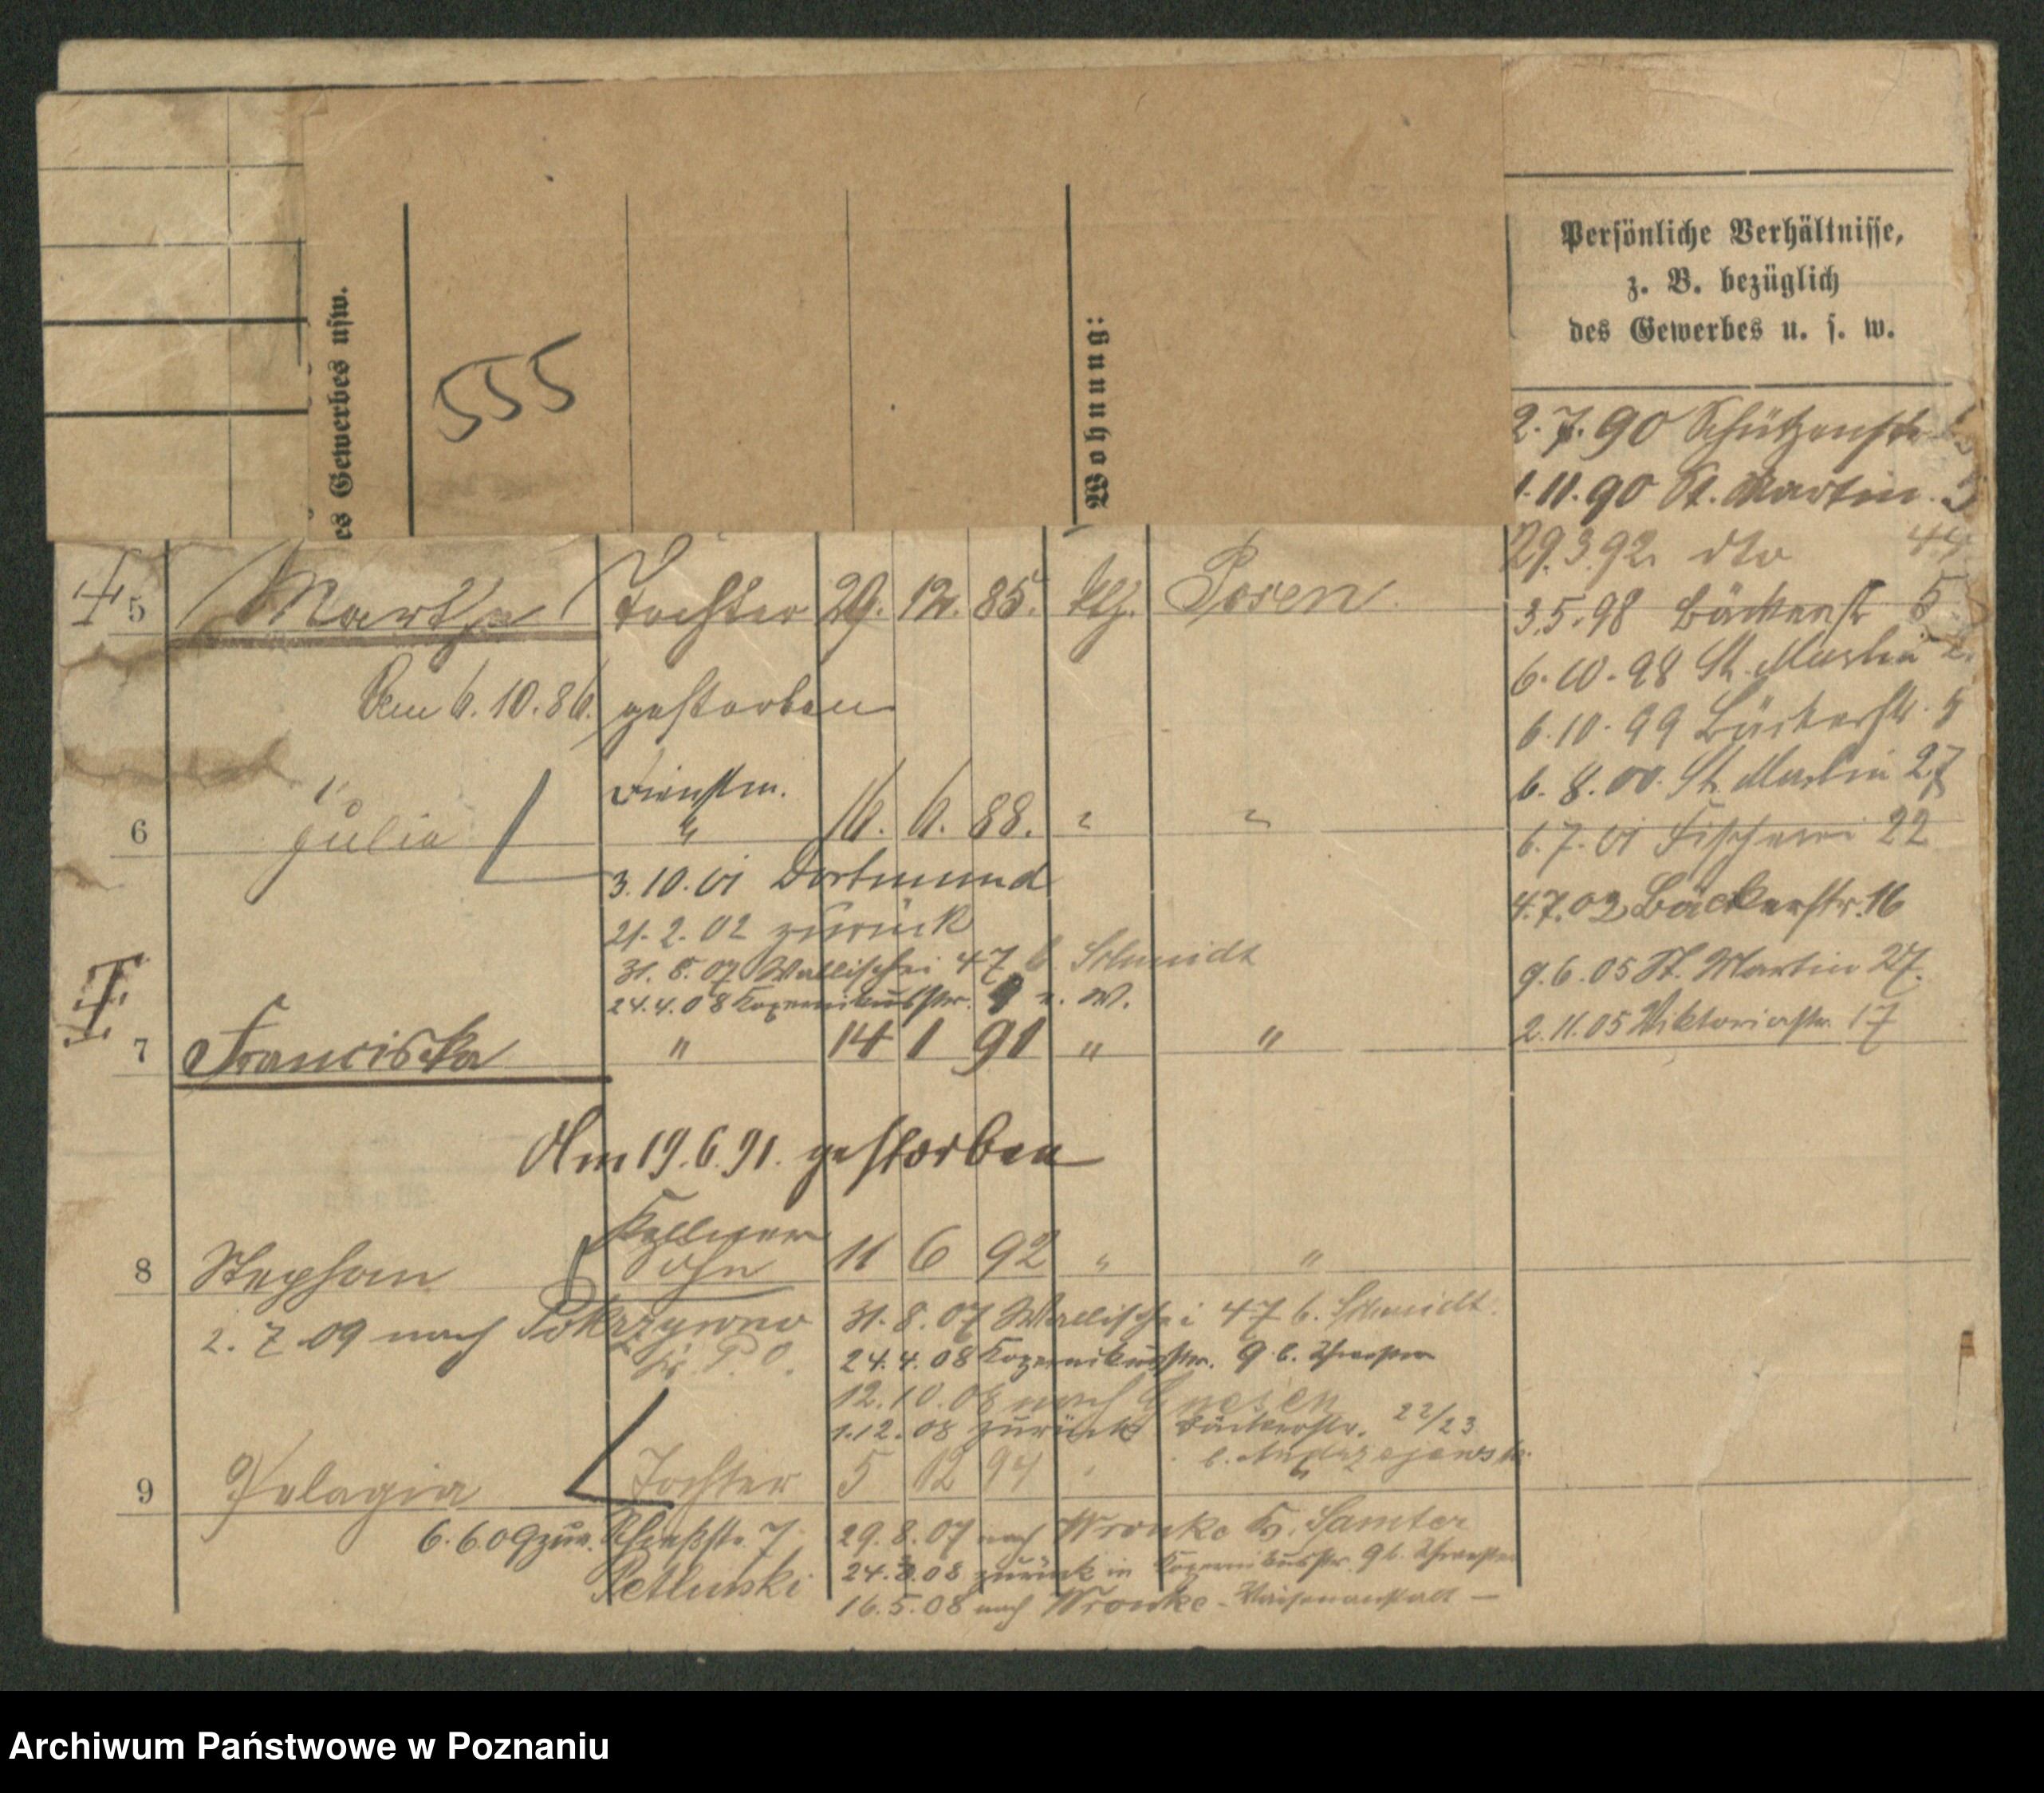 es Gewerbes usw.
555
Wohnung:
Persönliche Verhältnisse,
z. B. bezüglich
des Gewerbes u. s. w.
2.7.90 Schützenstr
1.11.90 St. Martin
29.3.92 dto 44
3.5.98 Bäckerstr 5
6.10.98 St. Martin
6.10.99 Bäckerstr. 5
6.8.00. St. Martin 27
6.7.01 Fischerei 22
4.7.02 Bäckerstr. 16
9.6.05 St. Martin 27.
2.11.05 Viktoriastr. 17
5 Martha Tochter 29. 12. 85. Posen
Den 6.10.86. gestorben
Dienstm.
6 Julia " 16. 6. 88. " "
3.10.01 Dortmund
21.2.02 zurück
31.8.07 Wallischei 47 b. Schmidt
24.4.08 Kopernikusstr. 9 u. W.
7 Franciska " 14 1 91 " "
Am 19.6.91. gestorben
Kellner
8 Stephan Sohn 11 6 92 " "
2.7.09 nach Pokrzywno
Kr. P. O.
31.8.07 Wallischei 47 b. Schmidt.
24.4.08 Kopernikusstr. 9 b. Schwester
12.10.08 nach Gnesen
1.12.08 zurück Bäckerstr. 22/23
b. Andrzejewski
9 Pelagia Tochter 5 12 94
6.6.09 zur. 7
Petlinski
29.8.07 nach Wronke Kr. Samter
24.3.08 zurück in Kopernikusstr. 9 b. Schwester
16.5.08 nach Wronke - Waisenanstalt -
Archiwum Państwowe w Poznaniu